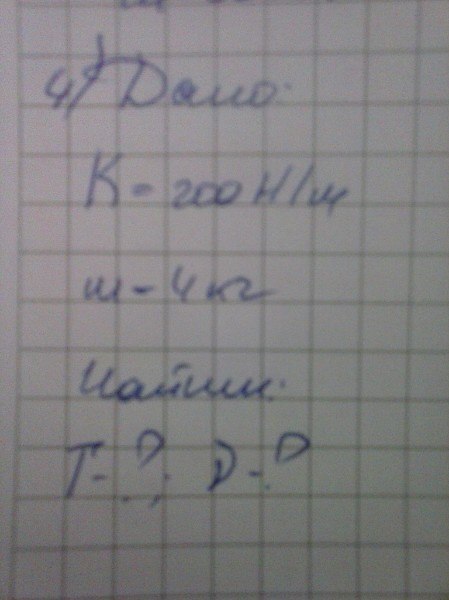 4) Дано:
К - 200 Н/м
m - 4 кг
Найти:
T - ?; ν - ?